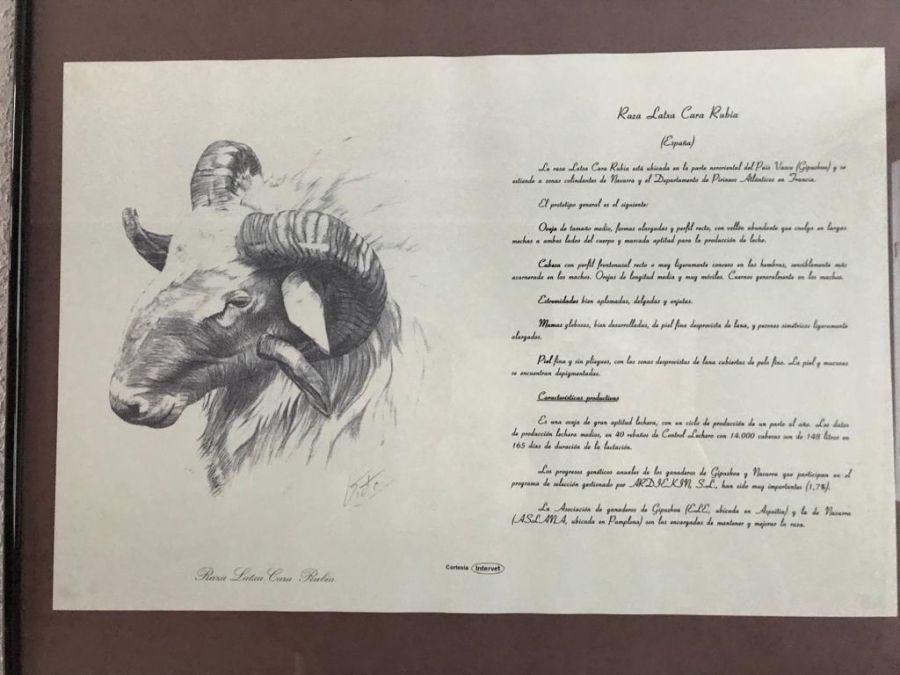 Raza Latxa Cara Rubia
(España)
La raza Latxa Cara Rubia está ubicada en la parte nororiental del País Vasco (Gipuzkoa) y se
extiende a zonas colindantes de Navarra y el Departamento de Pirineos Atlánticos en Francia.
El prototipo general es el siguiente:
Oveja de tamaño medio, formas alargadas y perfil recto, con vellón abundante que cuelga en largas
mechas a ambos lados del cuerpo y marcada aptitud para la producción de leche.
Cabeza con perfil frontonasal recto o muy ligeramente convexo en las hembras, sensiblemente más
acarnerada en los machos. Orejas de longitud media y muy móviles. Cuernos generalmente en los machos.
Extremidades bien aplomadas, delgadas y enjutas.
Mamas globosas, bien desarrolladas, de piel fina desprovista de lana, y pezones simétricos ligeramente
alargados.
Piel fina y sin pliegues, con las zonas desprovistas de lana cubiertas de pelo fino. La piel y mucosas
se encuentran depigmentadas.
Características productivas
Es una oveja de gran aptitud lechera, con un ciclo de producción de un parto al año. Los datos
de producción lechera medios, en 40 rebaños de Control Lechero con 14.000 cabezas son de 148 litros en
165 días de duración de la lactación.
Los progresos genéticos anuales de los ganaderos de Gipuzkoa y Navarra que participan en el
programa de selección gestionado por ARDIEKIN S.L., han sido muy importantes (1,7%).
La Asociación de ganaderos de Gipuzkoa (ELE, ubicada en Azpeitia) y la de Navarra
(ASLANA, ubicada en Pamplona) son las encargadas de mantener y mejorar la raza.
Raza Latxa Cara Rubia
Cortesía Intervet